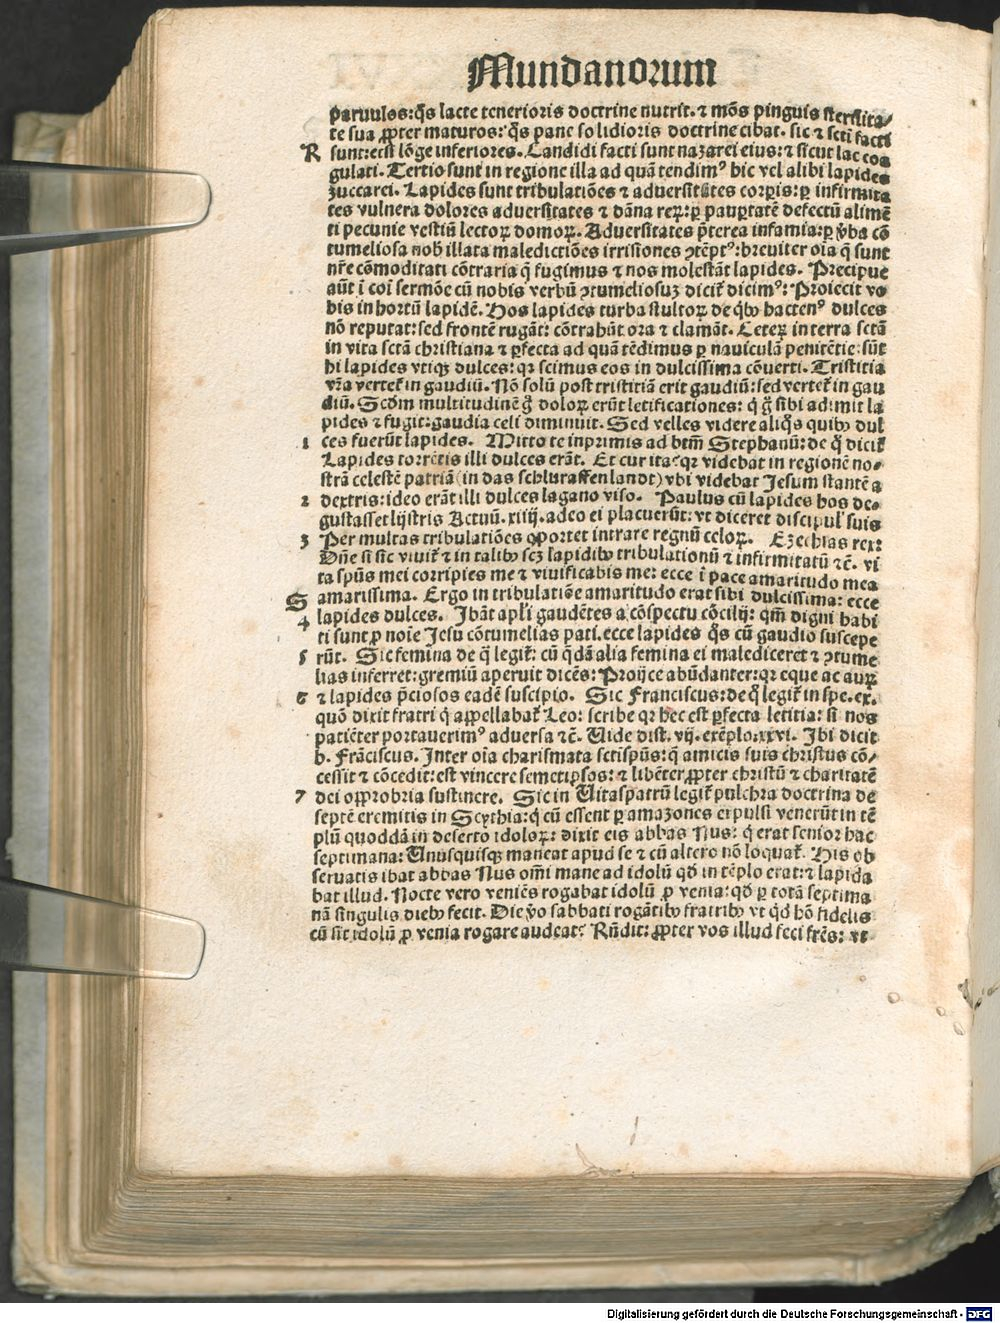 Mundanorum
paruulos: q̄s lacte tenerioris doctrine nutrit. ⁊ mōs pinguis sterilita⸗
te sua ꝓpter maturos: q̄s pane solidioris doctrine cibat. sic ⁊ scti facti
R sunt: etsi lōge inferiores. Candidi facti sunt nazarei eius: ⁊ sicut lac coa
gulati. Tertio sunt in regione illa ad quā tendimꝰ hic vel alibi lapides
zuccarei. Lapides sunt tribulatiōes ⁊ aduersitates corꝑis: ꝑ infirmita
tes vulnera dolores aduersitates ⁊ dāna reꝝ: ꝑ pauꝑtatē defectū alimē
ti pecunie vestiū lectoꝝ domoꝝ. Aduersitates p̄terea infamia: ꝑ v̄ba cō
tumeliosa nob̄ illata maledictiōes irrisiones ꝯtēptꝰ: breuiter oīa q̄ sunt
nr̄e cōmoditati cōtraria q̄ fugimus ⁊ nos molestāt lapides. Precipue
aūt ī coī sermōe cū nobis verbū ꝯtumeliosuꝫ dicit̄ dicimꝰ: Proiecit vo
bis in hortū lapidē. Hos lapides turba stultoꝝ de qͥbꝰ hactenꝰ dulces
nō reputat: sed frontē rugāt: cōtrahūt ora ⁊ clamāt. Ceteꝝ in terra sctā
in vita sctā christiana ⁊ ꝑfecta ad quā tēdimus ꝑ nauiculā penitētie: sūt
hi lapides vtiqꝫ dulces: qꝛ scimus eos in dulcissima cōuerti. Tristitia
vr̄a vertet̄ in gaudiū. Nō solū post tristitiā erit gaudiū: sed vertet̄ in gau
diū. Scdm̄ multitudinē g̊ doloꝝ erūt letificationes: q̇ g̊ sibi adimit la
pides ⁊ fugit: gaudia celi diminuit. Sed velles videre aliq̄s quibꝰ dul
1 ces fuerūt lapides. Mitto te inprimis ad btm̄ Stephanū: de q̊ dicit̄
Lapides torrētis illi dulces erāt. Et cur ita: qꝛ videbat in regionē no⸗
strā celestē patriā (in das schluraffenlandt) vbi videbat Jesum stantē a
2 dextris: ideo erāt illi dulces lagano viso. Paulus cū lapides hos de⸗
gustasset lijstris Actuū. xiiij. adeo ei placuerūt: vt diceret discipul' suis
3 Per multas tribulatiōes oportet intrare regnū celoꝝ. Ezechias rex:
Dn̄e si sic viuit̄ ⁊ in talibꝰ scꝫ lapidibꝰ tribulationū ⁊ infirmitatū ⁊c̄. vi
ta spūs mei corripies me ⁊ viuificabis me: ecce ī pace amaritudo mea
S amarissima. Ergo in tribulatiōe amaritudo erat sibi dulcissima: ecce
4 lapides dulces. Jbāt apl'i gaudētes a cōspectu cōcilij: qm̄ digni habi
ti sunt ꝓ noīe Jesu cōtumelias pati. ecce lapides q̄s cū gaudio suscepe
5 rūt. Sic femina de q̄ legit̄: cū q̄dā alia femina ei malediceret ⁊ ꝯtume
lias inferret: gremiū aperuit dicēs: Proijce abūdanter: qꝛ eque ac auꝝ
6 ⁊ lapides p̄ciosos eadē suscipio. Sic Franciscus: de q̊ legit̄ in spe. ex.
quō dixit fratri q̇ appellabat̄ Leo: scribe qꝛ hec est ꝑfecta letitia: si nos
patiēter portauerimꝰ aduersa ⁊c̄. Uide dist. vij. exēplo. xxvi. Jbi dicit
b. Frāciscus. Jnter oīa charismata sctispūs: q̄ amicis suis christus cō⸗
cessit ⁊ cōcedit: est vincere semetipsos: ⁊ libēter ꝓpter christū ⁊ charitatē
7 dei opprobria sustinere. Sic in Uitaspatrū legit̄ pulchra doctrina de
septē eremitis in Scythia: q̇ cū essent ꝑ amazones expulsi venerūt in tē
plū quoddā in deserto idoloꝝ: dixit eis abbas Nus: q̇ erat senior hac
septimana: Unusquisqꝫ maneat apud se ⁊ cū altero nō loquat̄. His ob
seruatis ibat abbas Nus om̄i mane ad idolū qd̄ in tēplo erat: ⁊ lapida
bat illud. Nocte vero veniēs rogabat idolū ꝓ venia: qd̄ ꝑ totā septima
nā singulis diebꝰ fecit. Die v̊o sabbati rogātibꝰ fratribꝰ vt qd̄ hō fidelis
cū sit idolū ꝓ venia rogare audeat? Rn̄dit: ꝓpter vos illud feci frēs: vt
Digitalisierung gefördert durch die Deutsche Forschungsgemeinschaft - DFG